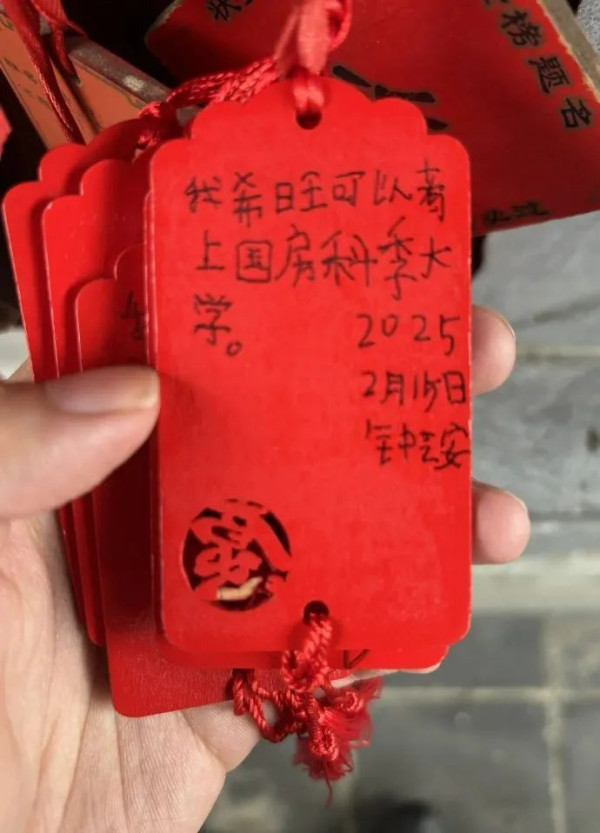 我希旺可以考
上国房科季大
学。
2025
2月15日
钟芸安
榜题名